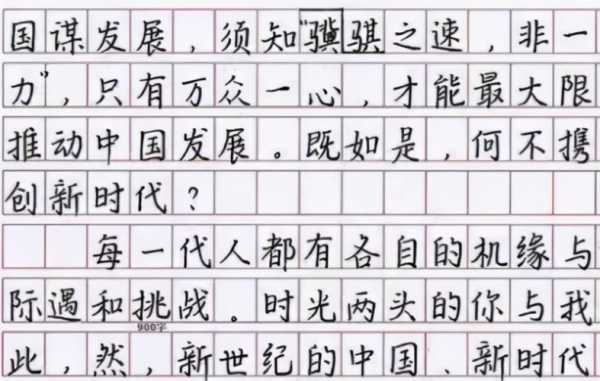 国谋发展，须知“骥骐之速，非一
力”，只有万众一心，才能最大限
推动中国发展。既如是，何不携
创新时代？
每一代人都有各自的机缘与
际遇和挑战。时光两头的你与我
900字
此，然，新世纪的中国、新时代